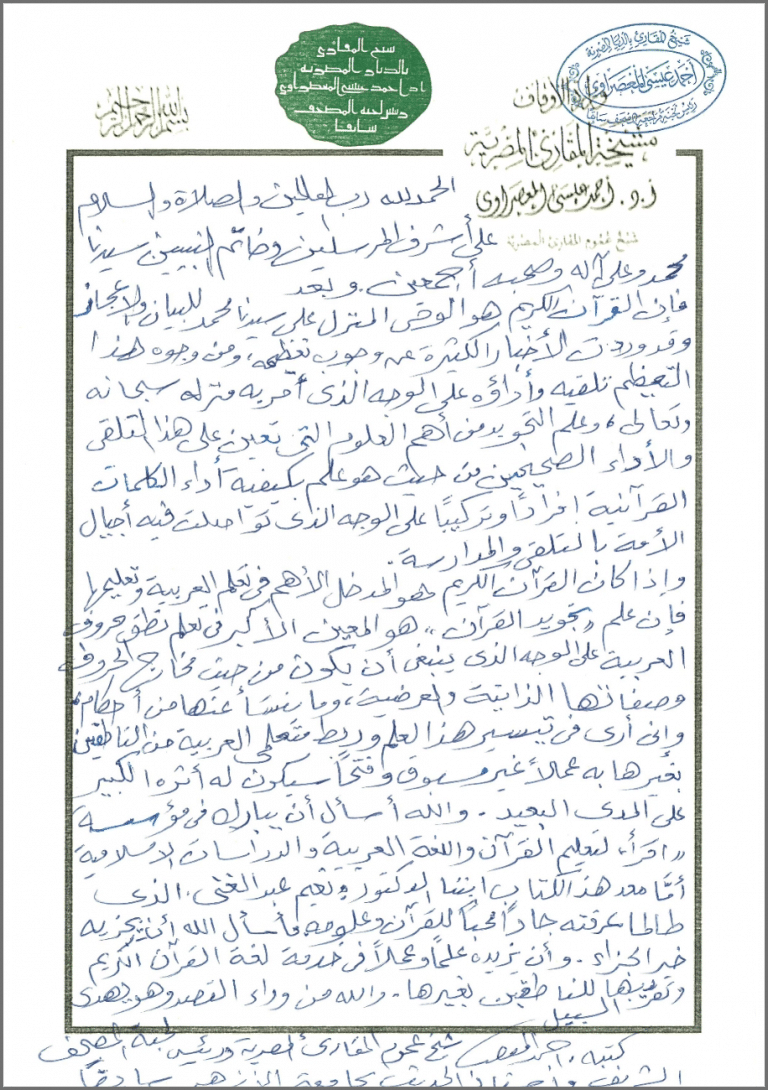 شيخ المقارئ
بالديار المصرية
أ د/ أحمد عيسى المعصراوي
ورئيس لجنة المصحف
سابقا
شيخ المقارئ بالديار المصرية
أحمد عيسى المعصراوي
بسم الله الرحمن الرحيم
وزارة الأوقاف
مشيخة المقارئ المصرية
أ.د. أحمد عيسى المعصراوى
شيخ عموم المقارئ المصرية
الحمد لله رب العالمين والصلاة والسلام
على أشرف المرسلين وخاتم النبيين سيدنا
محمد وعلى آله وصحبه أجمعين. وبعد
فإن القرآن الكريم هو الوحى المنزل على سيدنا محمد للبيان والإعجاز
وقد وردت الأخبار الكثيرة عن وجوب تعظيمه، ومن وجوه هذا
التعظيم تلقيه وأداؤه على الوجه الذى أمر به منزله سبحانه
وتعالى، وعلم التجويد من أهم العلوم التى تعين على هذا التلقى
والأداء الصحيحين من حيث هو علم بكيفية أداء الكلمات
القرآنية إفرادًا وتركيبًا على الوجه الذى تواصلت فيه أجيال
الأمة بالتلقى والمدارسة.
وإذا كان القرآن الكريم هو المدخل الأهم فى تعلم العربية وتعليمها
فإن علم "تجويد القرآن" هو المعين الأكبر فى تعلم نطق حروف
العربية على الوجه الذى ينبغى أن يكون من حيث مخارج الحروف
وصفاتها الذاتية والعرضية، وما ينشأ عنها من أحكام،
وإنى أرى فى تيسير هذا العلم وربط متعلمى العربية من الناطقين
بغيرها به عملاً غير مسبوق وفتحاً سيكون له أثره الكبير
على المدى البعيد. والله أسأل أن يبارك فى مؤسسة
"اقرأ" لتعليم القرآن واللغة العربية والدراسات الإسلامية
أمّا معد هذا الكتاب ابننا الدكتور/ نعيم عبدالغنى، الذى
طالما عرفته جادًا محبًا للقرآن وعلومه فأسأل الله أن يجزيه
خير الجزاء. وأن يزيده علمًا وعملاً فى خدمة لغة القرآن الكريم
وتقريبها للناطقين بغيرها. والله من وراء القصد وهو يهدى
السبيل
كتبه. أحمد شيخ عموم المقارئ المصرية ورئيس لجنة المصحف
الحديث بجامعة الأزهر